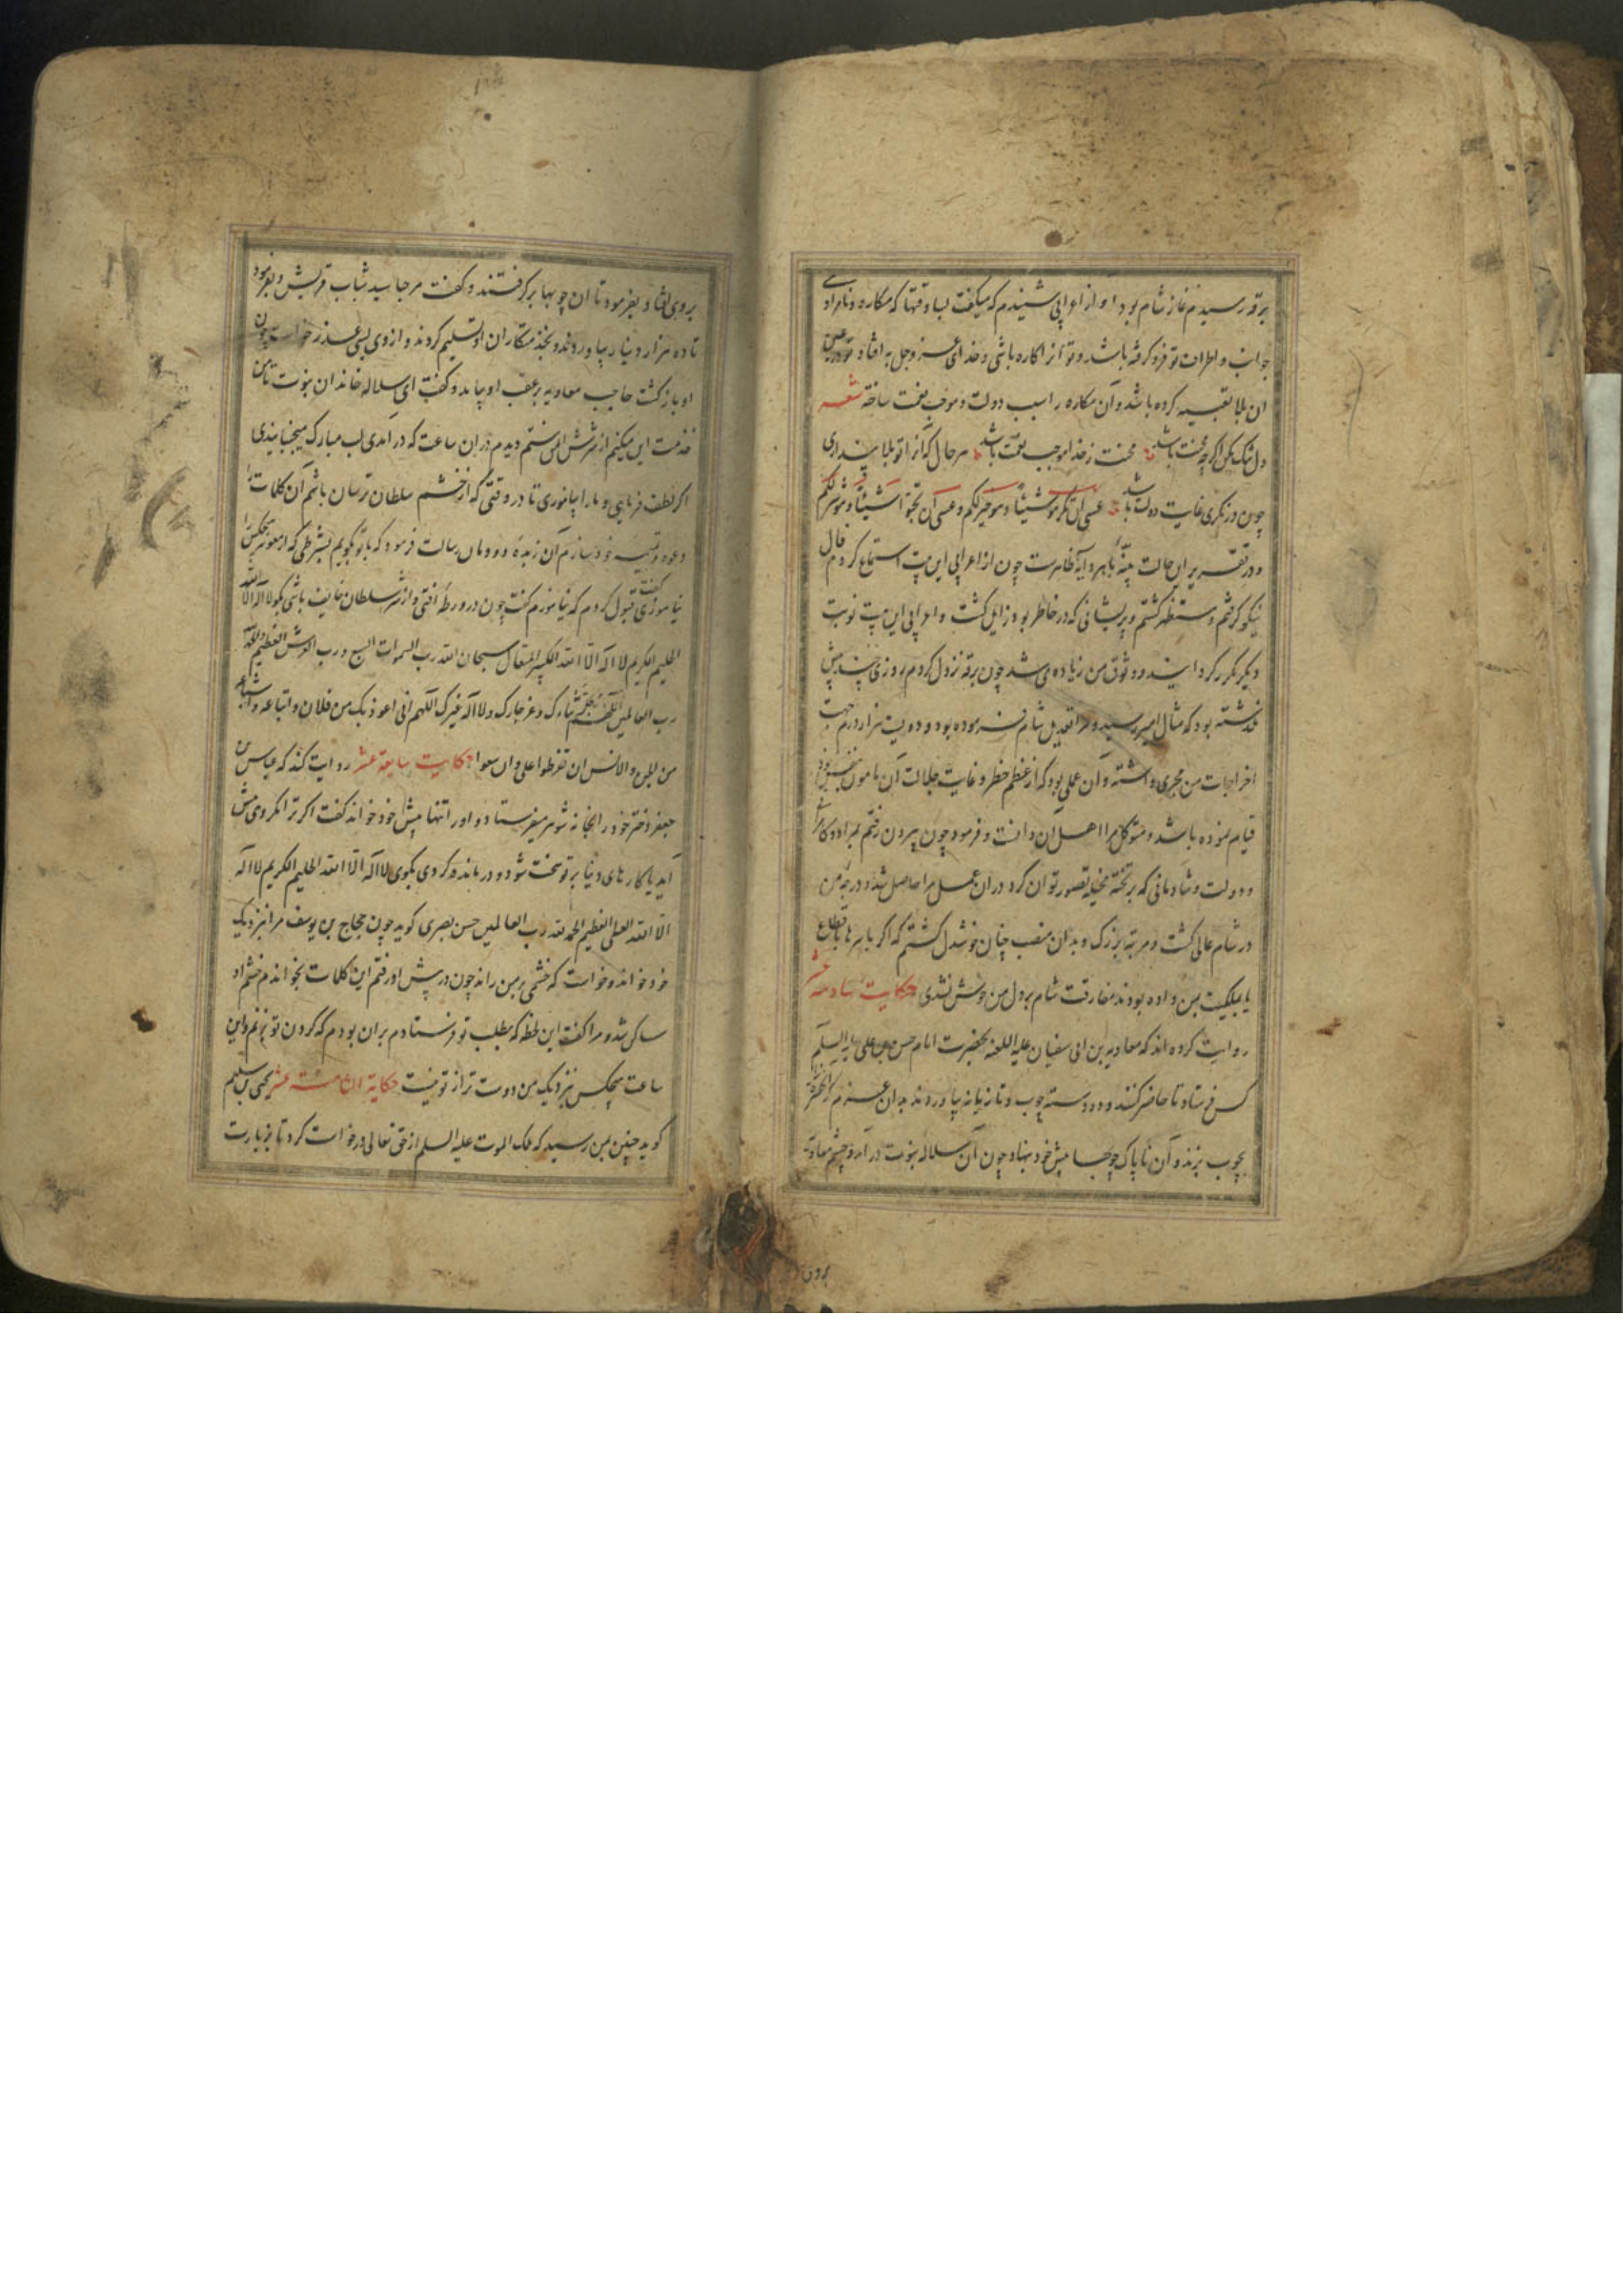 برقه رسیدم نماز شام بود آواز اعرابی شنیدم که میگفت بسا وقتها که مکاره و نامرادی
جوانب و اطراف تو فرو گرفته باشد و تو آنرا کاره باشی و خدای عز و جل به افتاد تو در عین
آن بلا تعبیه کرده باشد و آن مکاره را سبب دولت و موجب نعمت ساخته شعر
دل تنگ مکن اگرچه محنت باشد محنت ز خدا موجب نعمت باشد هر حال که آنرا تو بلا پنداری
چون در نگری غایت دولت باشد عسی ان تکرهوا شیئا و هو خیر لکم و عسی ان تحبوا شیئا و هو شر لکم
و در تقریر این حالت بینهٔ باهر و آیهٔ ظاهرست چون از اعرابی این بیت استماع کردم فال
نیکو گرفتم و مستظهر گشتم و پریشانی که در خاطر بود زایل گشت و اعرابی این بیت نوبت
دیگر مکرر گردانید و وثوق من زیاده می شد چون برقه نزول کردم روزی چند پیش
نگذشته بود که مثال امیر رسید و مرا تقدیل شام فرموده بود و دویست هزار درم جهت
اخراجات من مجری داشته و آن عملی بود که از عظم خطر و غایت جلالت آن مامون بنفس خود
قیام نموده باشد و متوکل مرا اهل آن دانست و فرمود چون بیرون رفتم بمراد و کامرانی
و دولت و شادمانی که بر تختهٔ مخیله تصور توان کرد در آن عمل مرا حاصل شد و درجهٔ من
در شام عالی گشت و مرتبه بزرگ و بدان منصب چنان خوشدل گشتم که اگر با سرها باقطاع
یا بملکیت بمن داده بودند مفارقت شام بر دل من خوش نشدی حکایت سادسه عشر
روایت کرده اند که معاویه بن ابی سفیان علیه اللعنه بحضرت امام حسن بن علی علیه السلم
کس فرستاد تا حاضر کنند و ده دسته چوب و تازیانه بیاوردند بدان عزم که آنحضرت را
بچوب بزند و آن ناپاک چوبها پیش خود بنهاد چون آن سلاله نبوت در آمد و چشم معاویه
بروی افتاد بفرمود تا آن چوبها برگرفتند و گفت مرحبا سید شباب قریش و بفرمود
تا ده هزار دینار بیاوردند و بخدمتکاران او تسلیم کردند و از وی بسی عذر خواست چون
او بازگشت حاجب معاویه بر عقب او بیامد و گفت ای سلاله خاندان نبوت تا من
خدمت این میکنم از شرش ایمن نیستم دیدم در آن ساعت که در آمدی لب مبارک میجنبانیدی
اگر لطف فرمایی و ما را بیاموزی تا در وقتی که از خشم سلطان ترسان باشم آن کلمات را
دعوه و تعبیه خود سازم آن زبدهٔ دودمان رسالت فرمود که با تو بگویم بشرطی که از معویه هیچکس را
نیاموزی گفت قبول کردم که نیاموزم گفت چون در ورطهٔ افتی و از شر سلطان خایف باشی بگو لا اله الا الله
الحلیم الکریم لا اله الا الله الکبیر المتعال سبحان الله رب السموات السبع و رب العرش العظیم و الحمد لله
رب العالمین اللهم جل ثناءک و عز جارک و لا اله غیرک اللهم انی اعوذ بک من فلان و اتباعه و اشیاعه
من الجن و الانس ان تفرطوا علی و ان سعوا حکایت سابعه عشر روایت کنند که عباس بن
جعفر دختر خود را بخانه شوهر میفرستاد و او را تنها پیش خود خواند گفت اگر ترا مکروهی پیش
آید یا کارهای دنیا بر تو سخت شود و درمانده گردی بگوی لا اله الا الله الحلیم الکریم لا اله
الا الله العلی العظیم الحمد لله رب العالمین حسن بصری گوید چون حجاج بن یوسف مرا بنزدیک
خود خواند و خواست که خشمی بر من راند چون در پیش او رفتم این کلمات بخواندم خشم او
ساکن شد و مرا گفت این لحظه که بطلب تو فرستادم بر آن بودم که گردن تو بزنم و این
ساعت هیچکس نزدیک من دوست تر از تو نیست حکایة الثامنة عشر یحیی بن سلیم
گوید چنین بمن رسید که ملک الموت علیه السلم از حق تعالی درخواست کرد تا بزیارت
بروی